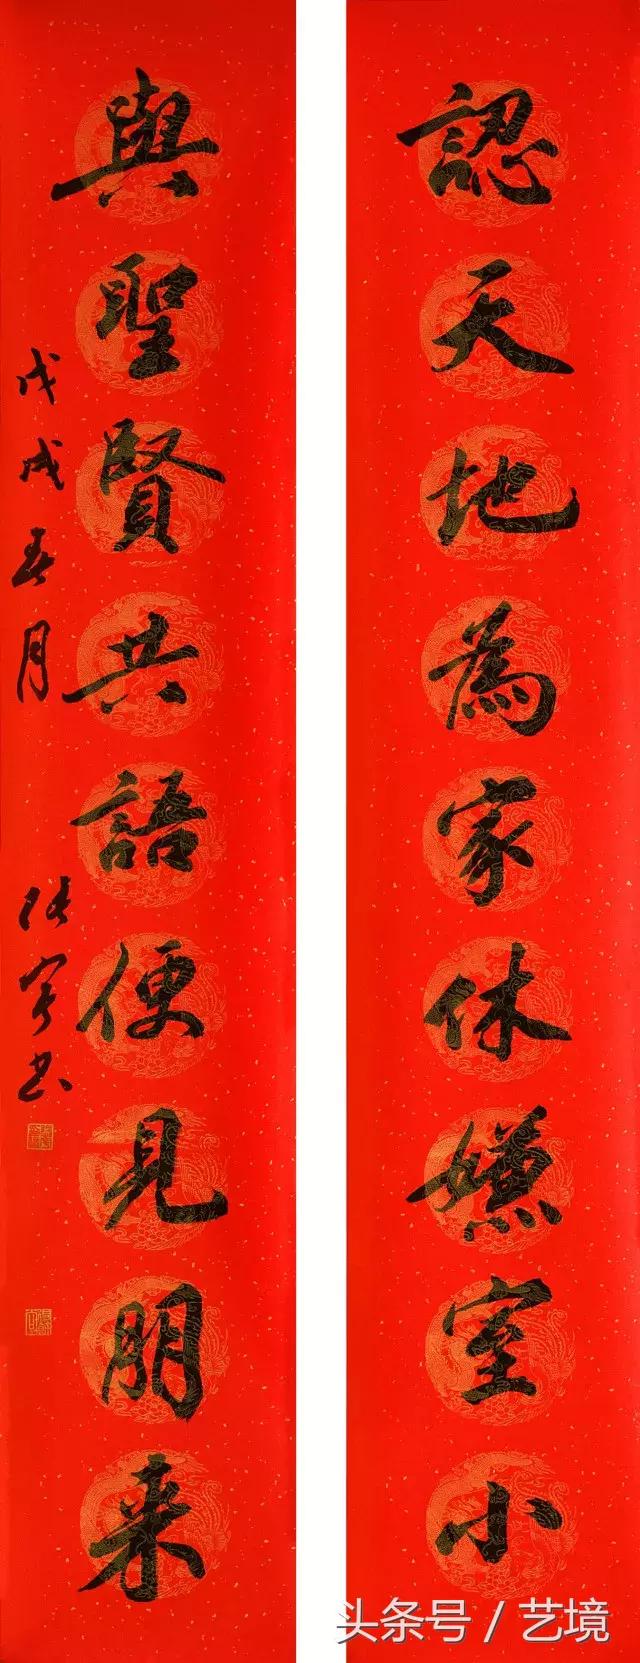 認天地為家休嫌室小
與聖賢共語便見朋来
戊戌春月
张 书
头条号 / 艺境